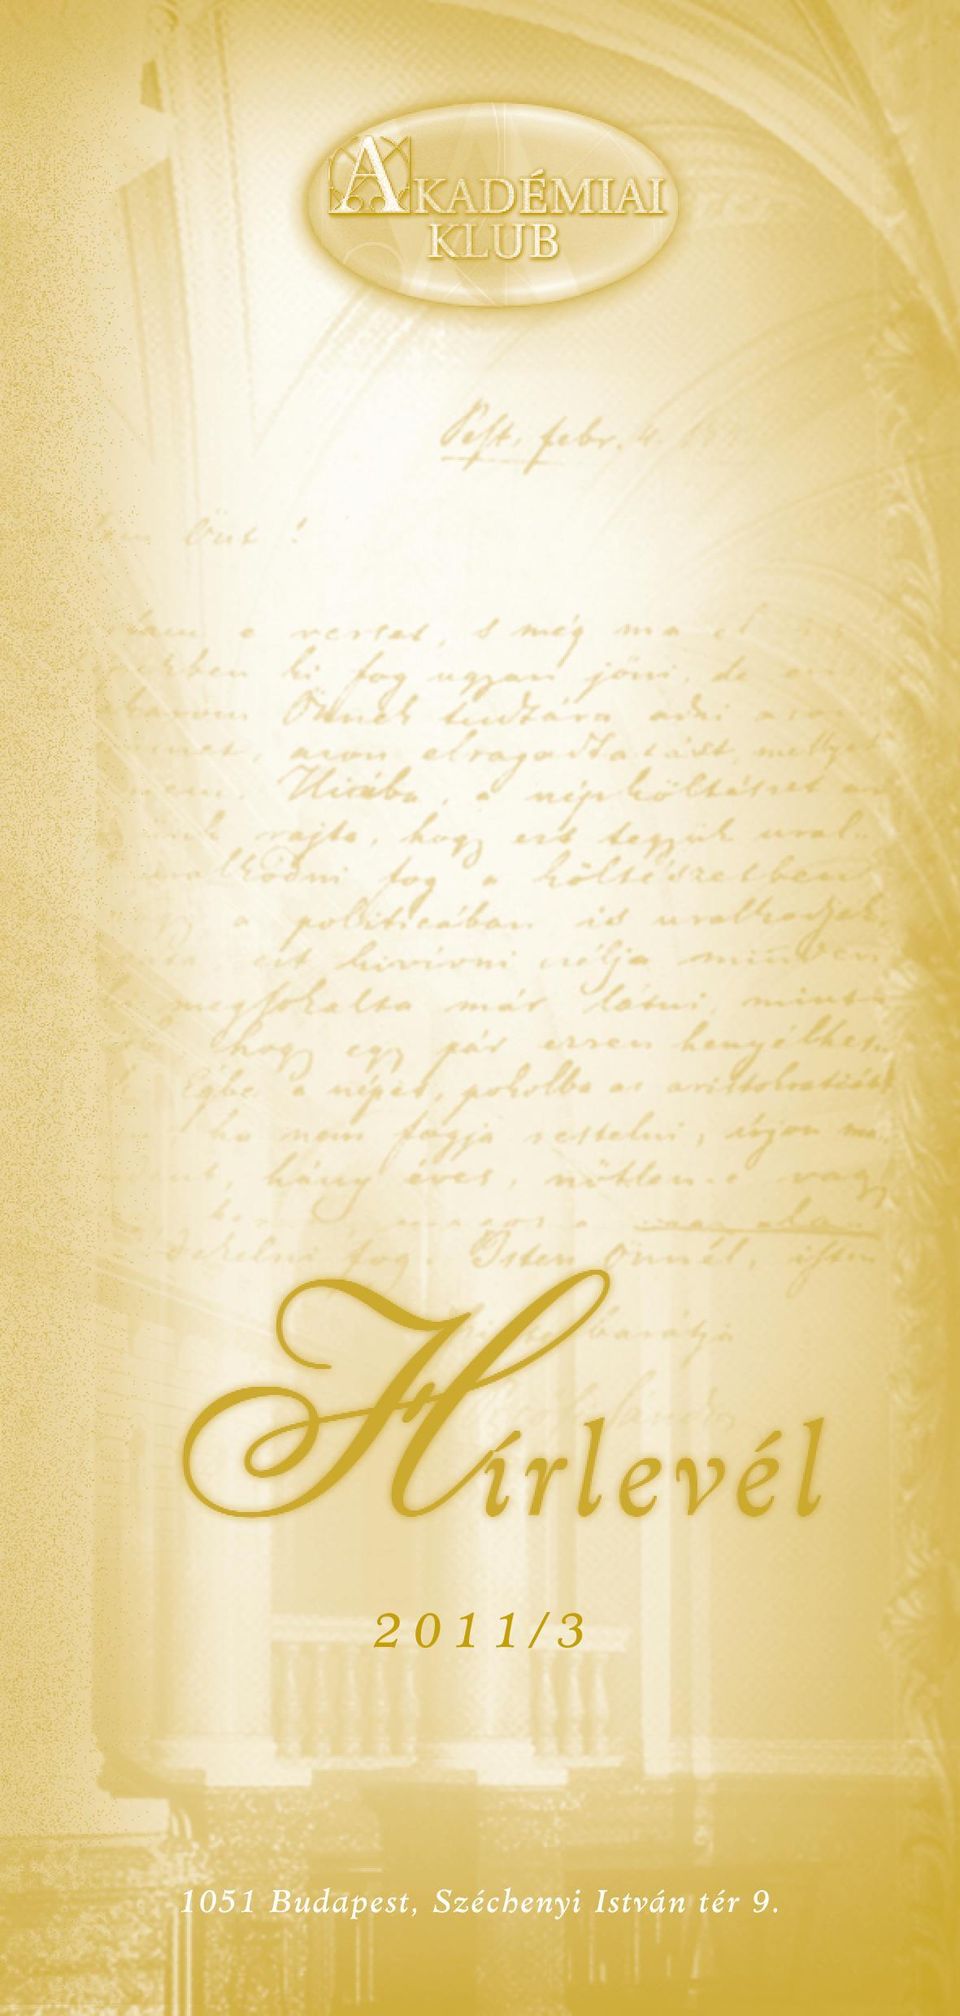 AKADÉMIAI
KLUB
Pest, febr. 4.
verset, s még ma el
ki fog ugyan jőni, de
Önnek tudtára adni
azon elragadtatást, mellyet
Hiába, a népköltészet
rajta, hogy ezt tegyük ural-
fog a költészetben
a politicában is uralkodjék
ezt kivívni célja minden
megsokalta már látni, mint
hogy egy pár ezren henyélhes-
Égbe a népet, pokolba az aristokratiát!
ha nem fogja restelni, írjon
hány éves, nőtlen-e vagy
fog. Isten Önnél, isten
barátja
Hírlevél
2011/3
1051 Budapest, Széchenyi István tér 9.